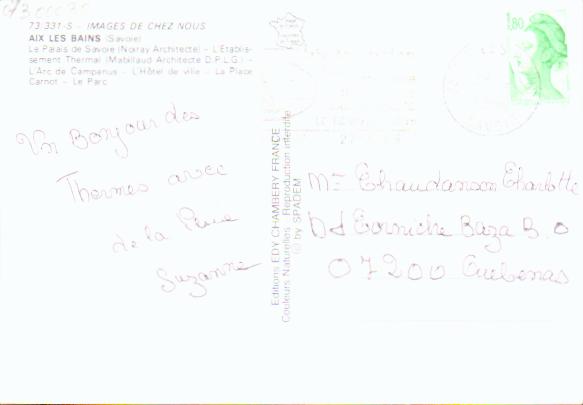 73.331-S - IMAGES DE CHEZ NOUS
AIX LES BAINS (Savoie)
Le Palais de Savoie (Noiray Architecte) - L'Etablis-
sement Thermal (Mabillaud Architecte D.P.L.G.) -
L'Arc de Campanus - L'Hôtel de ville - La Place
Carnot - Le Parc
1,80
Un Bonjour des
Thermes avec
de la Pluie
Suzanne
Editions EDY CHAMBERY FRANCE
Couleurs Naturelles - Reproduction interdite
(c) by SPADEM
Chaudanson Charlotte
Bd Corniche Baza B.
07200 Aubenas